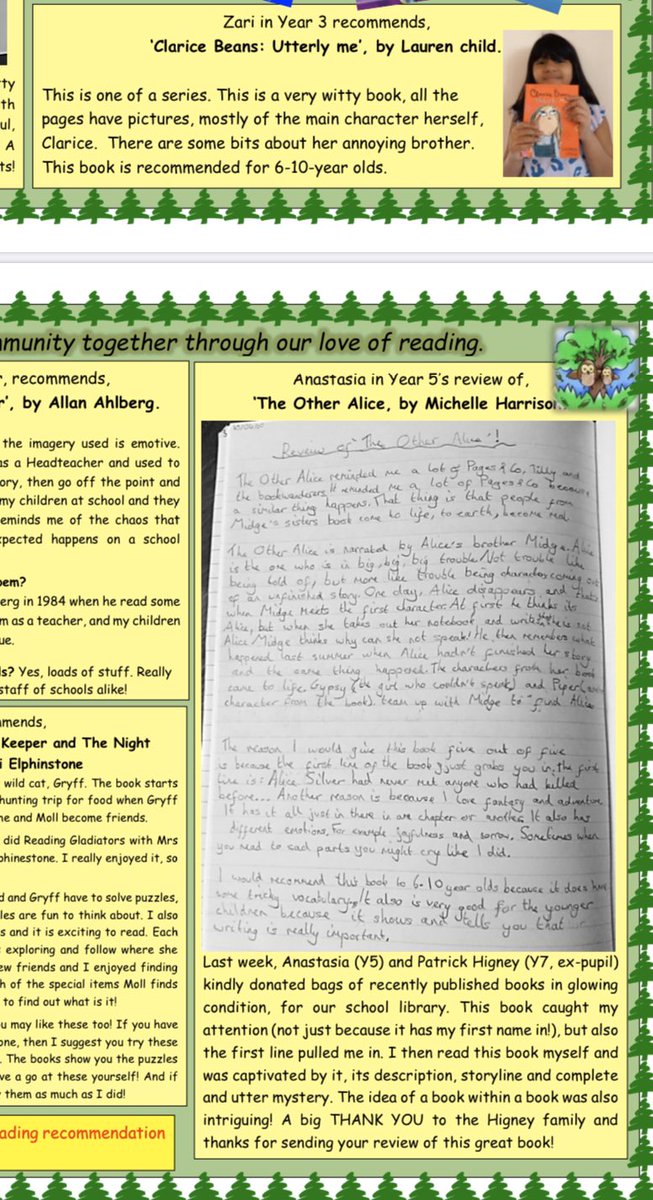 Zari in Year 3 recommends,
‘Clarice Beans: Utterly me’, by Lauren child.
This is one of a series. This is a very witty book, all the
pages have pictures, mostly of the main character herself,
Clarice. There are some bits about her annoying brother.
This book is recommended for 6-10-year olds.
ty
th
ul,
A
ts!
mmunity together through our love of reading.
r, recommends,
r’, by Allan Ahlberg.
the imagery used is emotive.
as a Headteacher and used to
ory, then go off the point and
my children at school and they
eminds me of the chaos that
xpected happens on a school
oem?
erg in 1984 when he read some
m as a teacher, and my children
ue.
ls? Yes, loads of stuff. Really
staff of schools alike!
mmends,
Keeper and The Night
i Elphinstone
wild cat, Gryff. The book starts
hunting trip for food when Gryff
ne and Moll become friends.
did Reading Gladiators with Mrs
phinestone. I really enjoyed it, so
d and Gryff have to solve puzzles,
les are fun to think about. I also
s and it is exciting to read. Each
exploring and follow where she
ew friends and I enjoyed finding
h of the special items Moll finds
to find out what is it!
ou may like these too! If you have
one, then I suggest you try these
. The books show you the puzzles
ve a go at these yourself! And if
them as much as I did!
ading recommendation
Anastasia in Year 5’s review of,
‘The Other Alice, by Michelle Harrison
Review of 'The Other Alice'!
The Other Alice reminded me a lot of Pages & Co, Tilly and
the bookwanderers. It reminded me a lot of Pages & Co because
a similar thing happens. That thing is that people from
Midge's sisters book come to life, to earth, become real.
The Other Alice is narrated by Alice's brother Midge. Alice
is the one who is in big, big, big trouble. Not trouble like
being told of, but more like trouble being characters coming out
of an unfinished story. One day, Alice disappears and that's
when Midge meets the first character. At first he thinks its
Alice, but when she takes out her notebook and writes she is not
Alice, Midge thinks why can she not speak! He then remembers what
happened last summer when Alice hadn't finished her story
and the same thing happened. The characters from her book
came to life. Gypsy (the girl who couldn't speak) and Piper (
character from the book). team up with Midge to find Alice
The reason I would give this book five out of five
is because the first line of the book just grabs you in, the first
line is: Alice Silver had never met anyone who had killed
before... Another reason is because I love fantasy and adventure.
It has it all just in there in one chapter or another. It also has
different emotions. For example joyfulness and sorrow. Sometimes when
you read to sad parts you might cry like I did.
I would recommend this book to 6-10 year olds because it does have
some tricky vocabulary. It also is very good for the younger
children because it shows and tells you that
writing is really important.
Last week, Anastasia (Y5) and Patrick Higney (Y7, ex-pupil)
kindly donated bags of recently published books in glowing
condition, for our school library. This book caught my
attention (not just because it has my first name in!), but also
the first line pulled me in. I then read this book myself and
was captivated by it, its description, storyline and complete
and utter mystery. The idea of a book within a book was also
intriguing! A big THANK YOU to the Higney family and
thanks for sending your review of this great book!